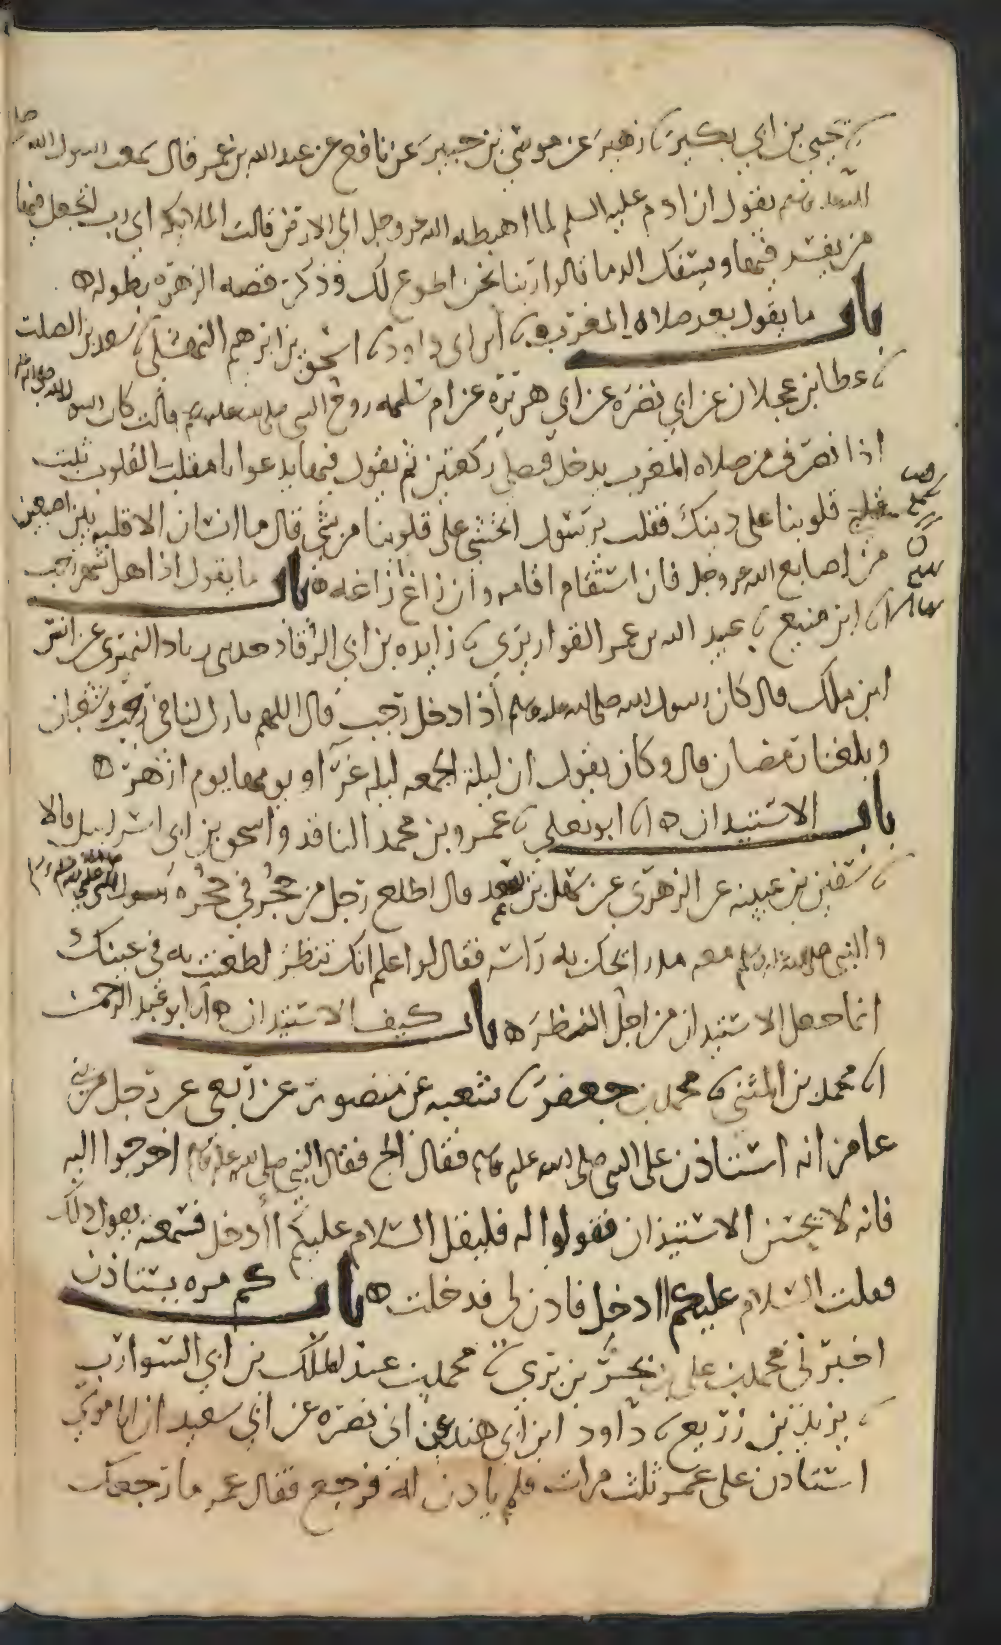 ثنا يحيى بن ابي بكير ثنا زهير عن موسى بن جبير عن نافع عن عبد الله بن عمر قال سمعت رسول الله صلى
الله عليه وسلم يقول ان ادم عليه السلم لما اهبطه الله عز وجل الى الارض قالت الملايكه اي رب اتجعل فيها
من يفسد فيها ويسفك الدما قالوا ربنا نحن اطوع لك وذكر قصه الزهره بطوله ه
باب ما يقول بعد صلاه المغرب ه انا ابن ابي داود ثنا اسحق بن ابرهيم النهشلي ثنا سعد بن الصلت
ثنا عطا بن عجلان عن ابي نضره عن ابي هريره عن ام سلمه زوج النبي صلى الله عليه وسلم قالت كان رسول الله صلى الله عليه وسلم
اذا انصرف من صلاه المغرب يدخل فيصلي ركعتين ثم يقول فيما يدعوا يا مقلب القلوب ثبت
قلوبنا على دينك فقلت يرسول اتخشى على قلوبنا من شي قال ما انسان الا قلبه بين اصبعين
من اصابع الله عز وجل فان استقام اقامه وان زاغ ازاغه ه باب ما يقول اذا هل شهر رجب
انا ابن منيع ثنا عبيد الله بن عمر القواريري ثنا زايده بن ابي الرقاد حدثني زياد النميري عن انس
ابن ملك قال كان رسول الله صلى الله عليه وسلم اذا دخل رجب قال اللهم بارك لنا في رجب وشعبان
وبلغنا رمضان قال وكان يقول ان ليلة الجمعه ليله غرا ويومها يوم ازهر ه
باب الاستيذان ه انا ابو يعلى ثنا عمرو بن محمد الناقد واسحق بن ابي اسرايل قالا
ثنا سفين بن عيينه عن الزهري عن سهل بن سعد قال اطلع رجل من حجر في حجره رسول الله صلى الله عليه وسلم
والنبي صلى الله عليه وسلم معه مدرا يحك به راسه فقال لو اعلم انك تنظر لطعنت به في عينك
انما جعل الاستيذان من اجل النظر ه باب كيف الاستيذان ه انا ابو عبد الرحمن
انا محمد بن المثنى ثنا محمد بن جعفر ثنا شعبه عن منصور عن ربعي عن رجل من بني
عامر انه استاذن على النبي صلى الله عليه وسلم فقال الج فقال النبي صلى الله عليه وسلم اخرجوا اليه
فانه لا يحسن الاستيذان فقولوا له فليقل السلام عليكم اادخل فسمعته يقول ذلك
فقلت السلام عليكم اادخل فاذن لي فدخلت ه باب كم مره يستاذن
اخبرني محمد بن علي بن بحر بن بري ثنا محمد بن عبد الملك بن ابي الشوارب
ثنا يزيد بن زريع ثنا داود ابن ابي هند عن ابي نضره عن ابي سعيد ان ابا موسى
استاذن على عمر ثلث مرات فلم ياذن له فرجع فقال عمر ما رجعك